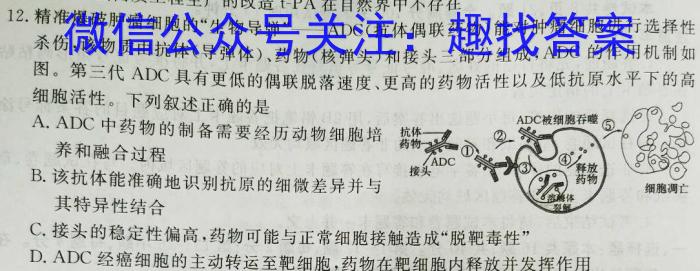 的改造 t-PA 在自然界中不存在
12. 精准爆破肿瘤细胞的“生物导弹”——ADC(抗体偶联药物)能对肿瘤细胞进行选择性
杀伤,该物质由抗体(导弹体)、药物(核弹头)和接头三部分组成,ADC 的作用机制如
图。第三代 ADC 具有更低的偶联脱落速度、更高的药物活性以及低抗原水平下的高
细胞活性。下列叙述正确的是
A. ADC 中药物的制备需要经历动物细胞培
养和融合过程
B. 该抗体能准确地识别抗原的细微差异并与
其特异性结合
C. 接头的稳定性偏高,药物可能与正常细胞接触造成“脱靶毒性”
D. ADC 经癌细胞的主动转运至靶细胞,药物在靶细胞内释放并发挥作用
微信公众号关注:趣找答案
抗体
药物
接头
ADC
①
②
ADC被细胞吞噬
③
④
释放
药物
溶酶体
裂解
⑤
细胞凋亡